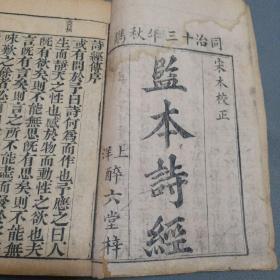 同治十三年秋鐫
宋本校正
監本詩經
上洋醉六堂梓
詩經傳序
或有問於予曰詩何為而作也予應之曰人
生而靜天之性也感於物而動性之欲也夫
既有欲矣則不能無思既有思矣則不能無
言既有言矣則言之所不能盡而